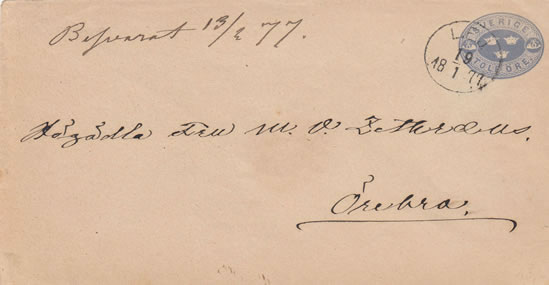 Besvarat 13/2 77.
SVERIGE
TOLF ÖRE
19
18 1 77
Högädla Fru M. v. Zethelius.
Örebro.